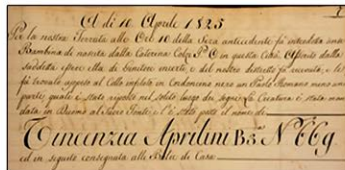 A di 10 Aprile 1825
Per la nostra Ferrata alle Ore 10 della Sera antecedente fu introdotta una
Bambina di nascita dalla Caterina in questa Città
suddetta essere ella di Genitore incerto, e del nostro distretto fu ricevuta, e le
fu trovato appeso al Collo infilato in Cordoncino nero un Paolo Romano meno una
parte quale è stato riposto nel solito luogo dei segni. La Creatura è stata man
data in Buonvo al Sacro Fonte, e l'è stato posto il nome di
Vincenzia Aprilini B.3. N.° 669
ed in seguito consegnata alle Balie di Casa